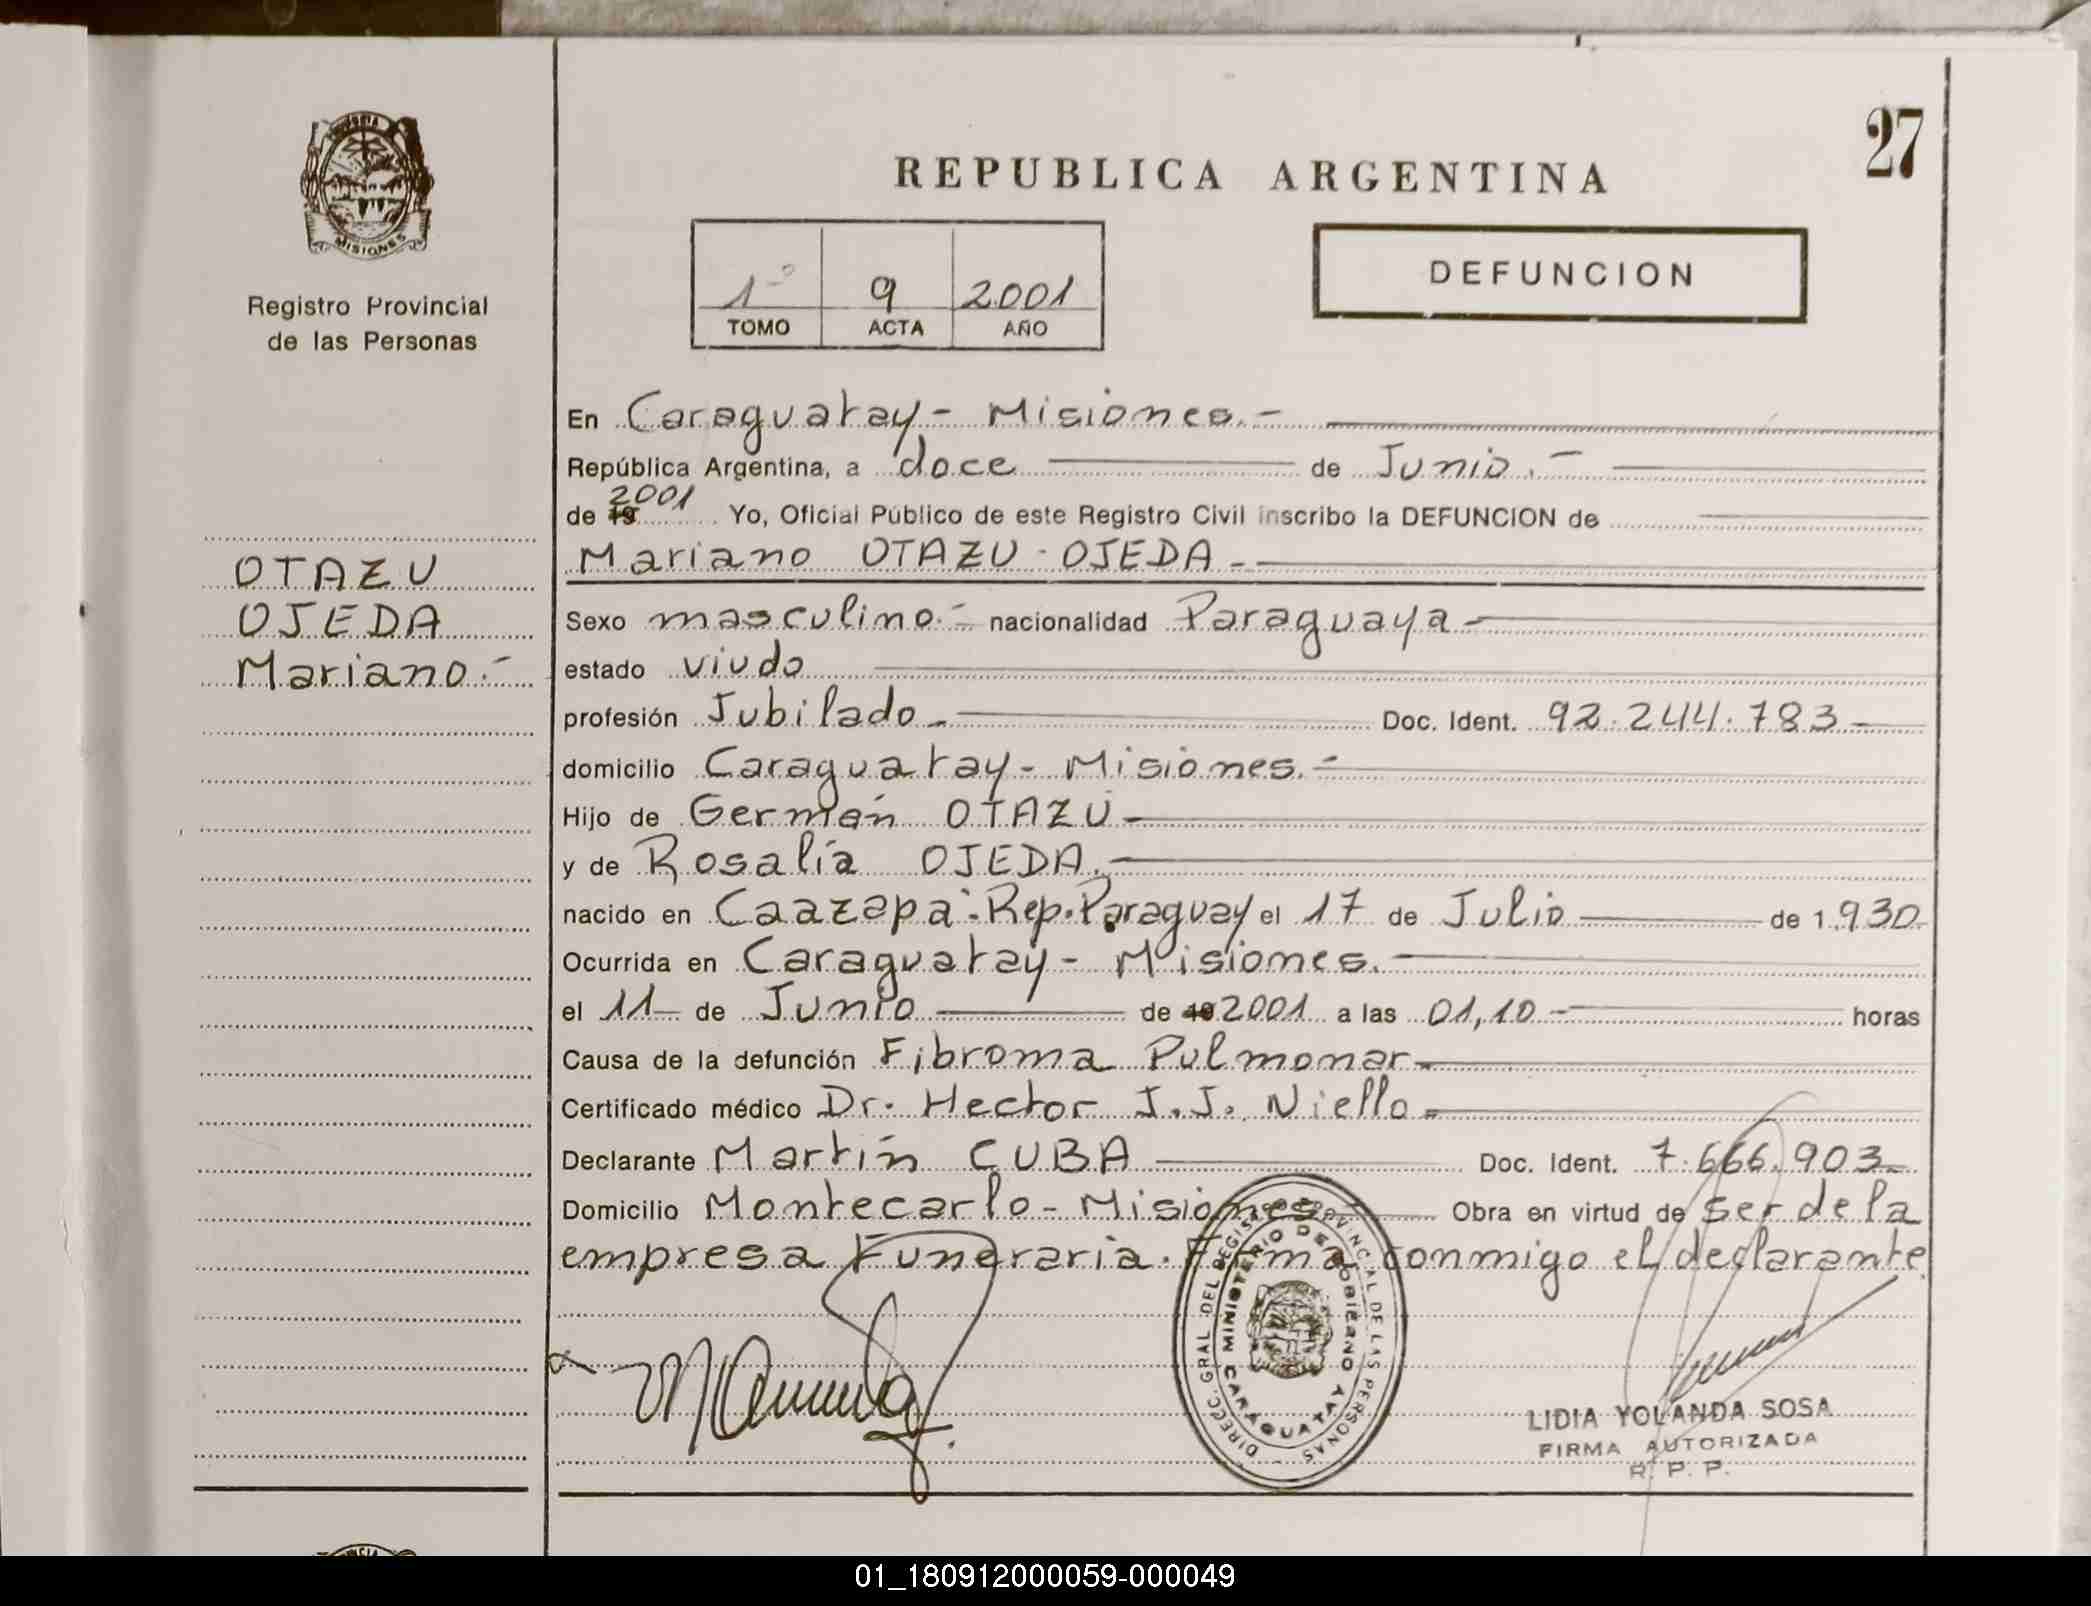 27
MISIONES
Registro Provincial
de las Personas
REPUBLICA ARGENTINA
1º 9 2001
TOMO ACTA AÑO
DEFUNCION
OTAZU
OJEDA
Mariano.-
En Caraguatay - Misiones.-
República Argentina, a doce de Junio.-
de 19 2001 Yo, Oficial Público de este Registro Civil inscribo la DEFUNCION de
Mariano OTAZU - OJEDA -
Sexo masculino.- nacionalidad Paraguaya -
estado viudo
profesión Jubilado - Doc. Ident. 92.244.783 -
domicilio Caraguatay - Misiones.-
Hijo de Germán OTAZU -
y de Rosalía OJEDA.-
nacido en Caazapa - Rep. Paraguay el 17 de Julio de 1.930
Ocurrida en Caraguatay - Misiones.-
el 11 de Junio de 19 2001 a las 01,10 - horas
Causa de la defunción Fibroma Pulmonar -
Certificado médico Dr. Hector J. J. Niello -
Declarante Martín CUBA Doc. Ident. 7.666.903 -
Domicilio Montecarlo - Misiones - Obra en virtud de ser de la
empresa Funeraria. Firma conmigo el declarante
DIRECC. GRAL. DEL REGISTRO PROVINCIAL DE LAS PERSONAS
MINISTERIO DE GOBIERNO
CARAGUATAY
LIDIA YOLANDA SOSA
FIRMA AUTORIZADA
R. P. P.
01_180912000059-000049